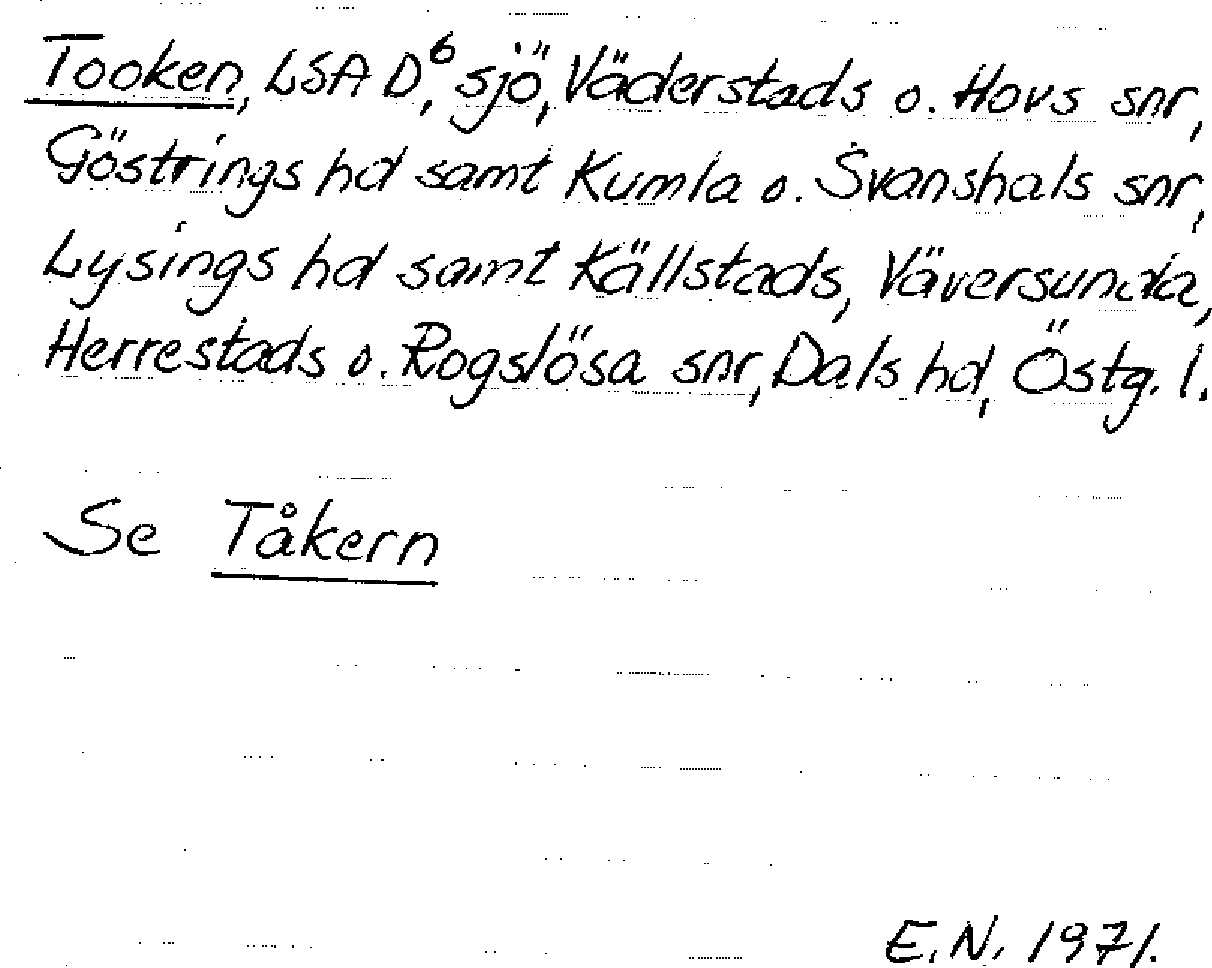 Tooken, LSA D⁶, sjö, Väderstads o. Hovs snr,
Göstrings hd samt Kumla o. Svanshals snr,
Lysings hd samt Källstads, Väversunda,
Herrestads o. Rogslösa snr, Dals hd, Östg. l.
Se Tåkern
E.N. 1971.